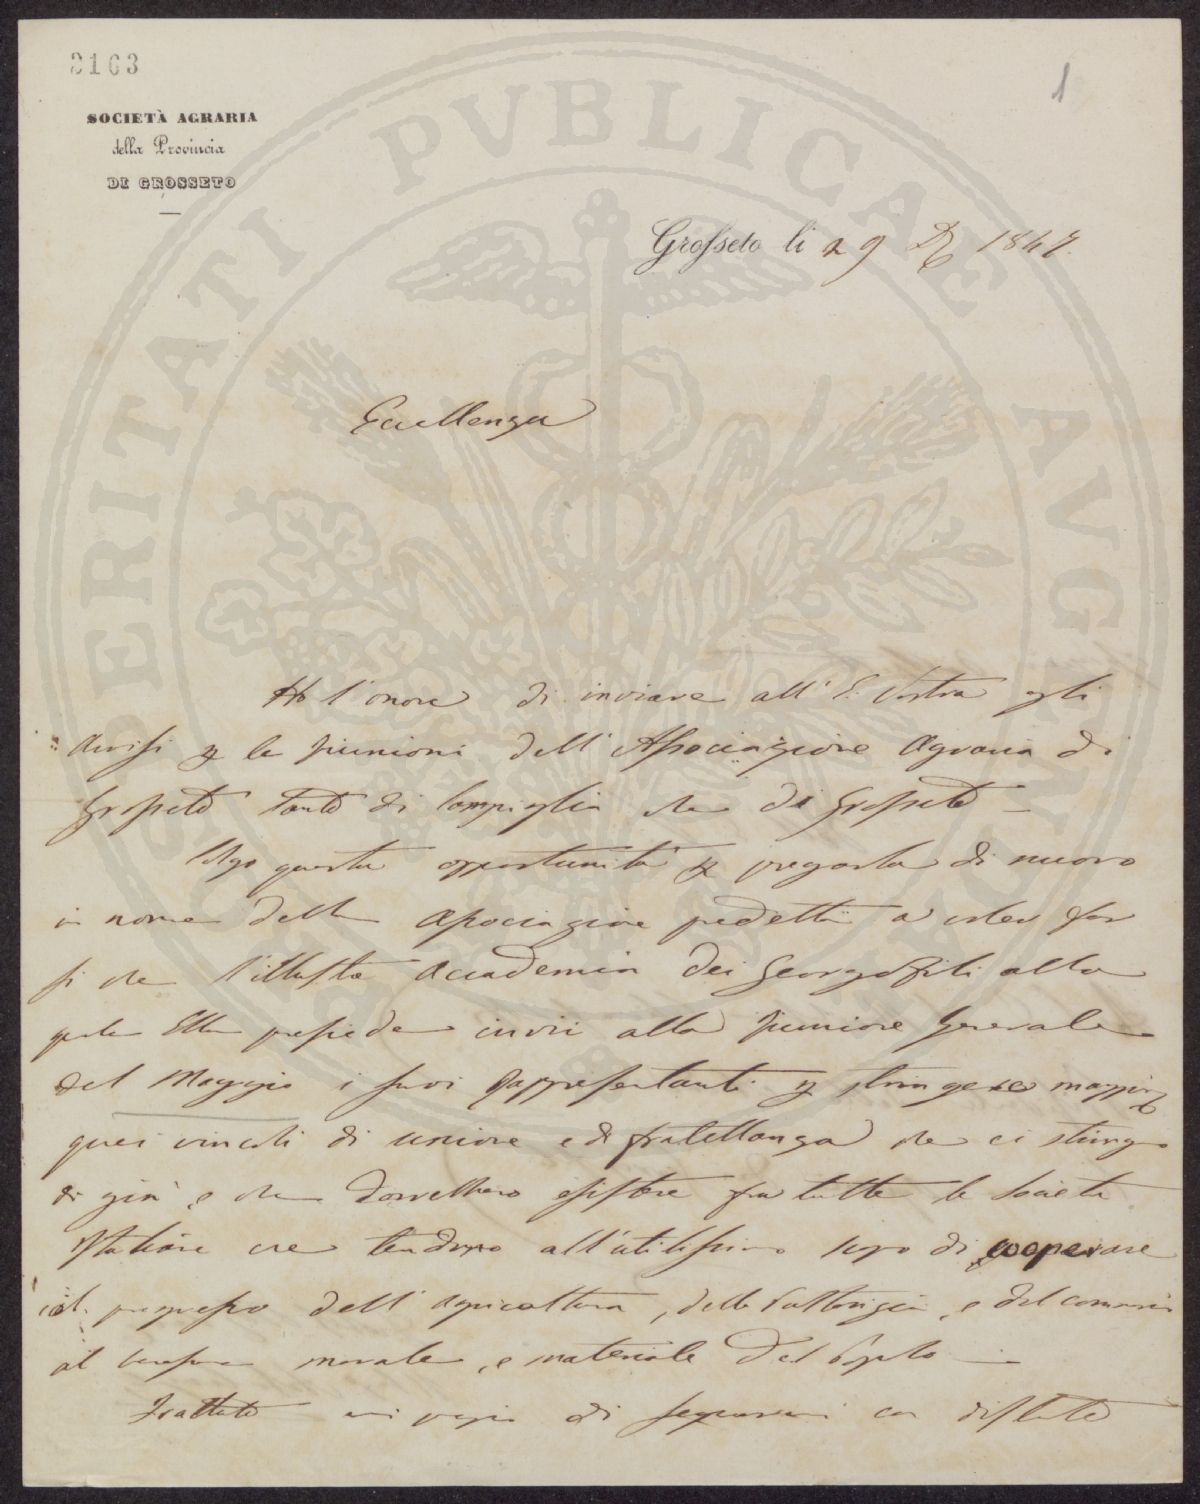 3163
1
SOCIETÀ AGRARIA
della Provincia
DI GROSSETO
Grosseto li 29 1847.
Eccellenza
Ho l'onore di inviare all'E. Vostra gli
avvisi p le riunioni dell'Associazione Agraria di
Grosseto tanto di Campiglia che di Grosseto
Colgo questa opportunità p pregarla di nuovo
in nome della Associazione predetta a voler far
si che l'illustre Accademia dei Georgofili alla
quale Ella presiede invii alla riunione Generale
del Maggio i suoi Rappresentanti p stringere
quei vincoli di unione e di fratellanza che ci stringono
di già, e che dovrebbero esistere fra tutte le Società
Italiane che tendono all'utilissimo scopo di cooperare
al progresso dell'agricoltura, della Pastorizia, e del commercio
al benessere morale, e materiale del Popolo
Frattanto mi pregio di segnarmi con distinto
PROSPERITATI PVBLICAE AVGENDAE